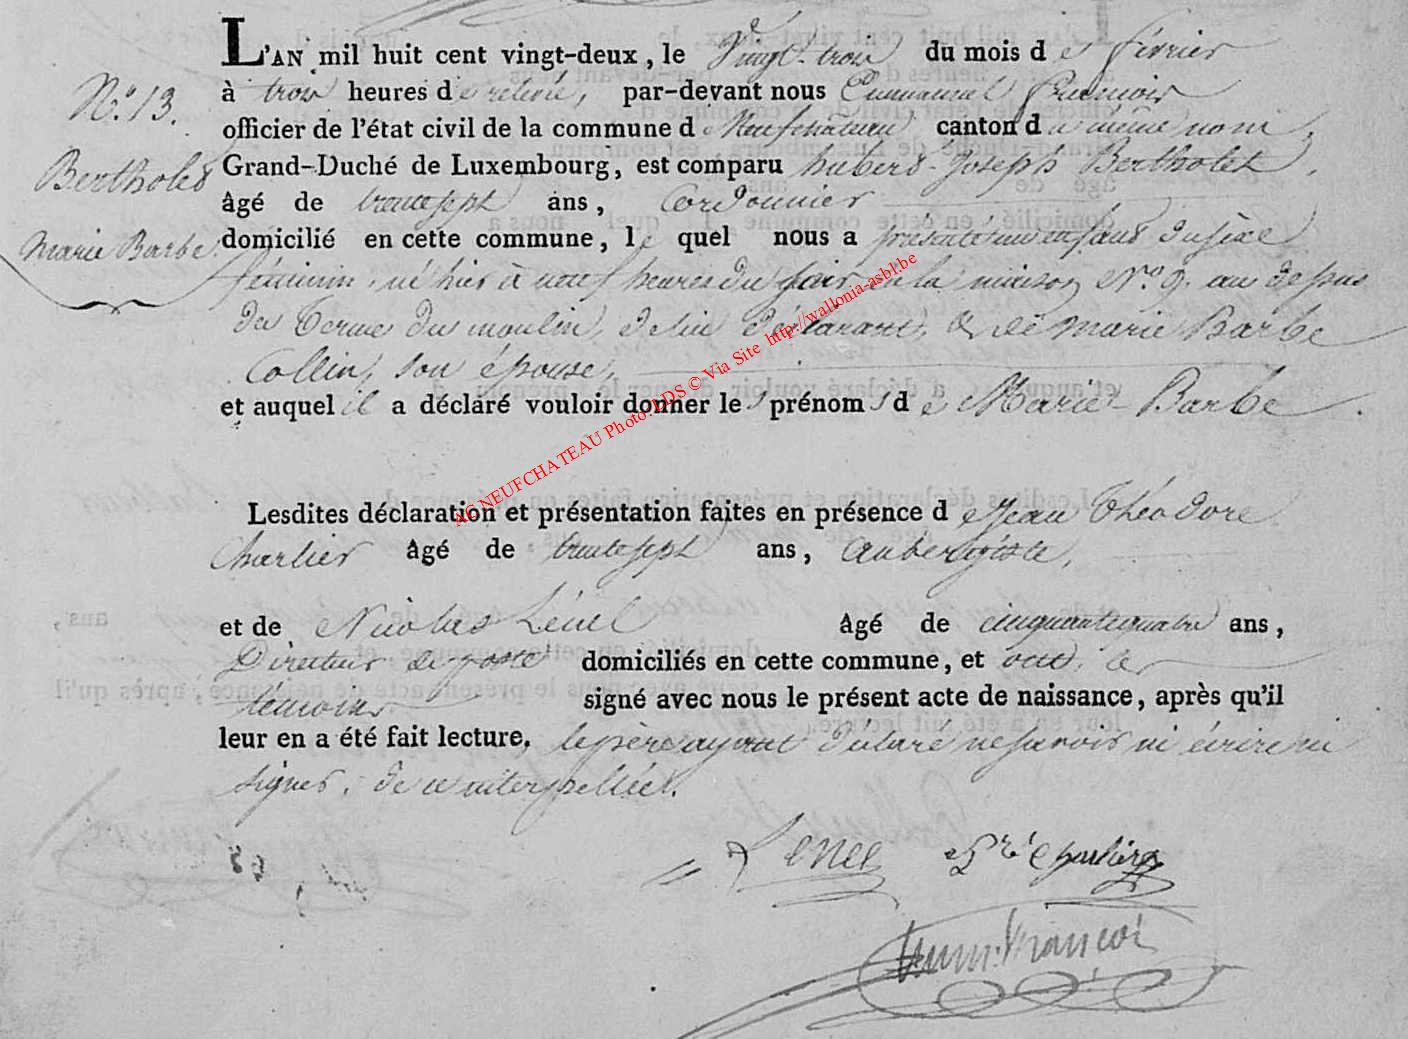 L'AN mil huit cent vingt-deux, le Vingt-trois du mois de février
N.° 13.
à trois heures de relevée, par-devant nous Emmanuel
officier de l'état civil de la commune de Neufchateau canton du même nom,
Bertholet
Grand-Duché de Luxembourg, est comparu hubert-Joseph Bertholet,
âgé de trentesept ans, Cordonnier
Marie Barbe.
domicilié en cette commune, lequel nous a présenté un enfant du sexe
féminin, né hier à neuf heures du soir en la maison N.° 9. au dessus
du du moulin, de lui déclarant, & de Marie Barbe
Collin, son épouse,
et auquel il a déclaré vouloir donner les prénoms de Marie-Barbe.
AC NEUFCHATEAU Photo: LDS © Via Site http://wallonia-asbl.be
Lesdites déclaration et présentation faites en présence de Jean Théodore
Charlier âgé de trentesept ans, aubergiste,
et de Nicolas âgé de cinquantequatre ans,
Directeur de poste domiciliés en cette commune, et ont, les
témoins signé avec nous le présent acte de naissance, après qu'il
leur en a été fait lecture, le père ayant déclaré ne savoir ni écrire ni
signer, de ce interpellé.